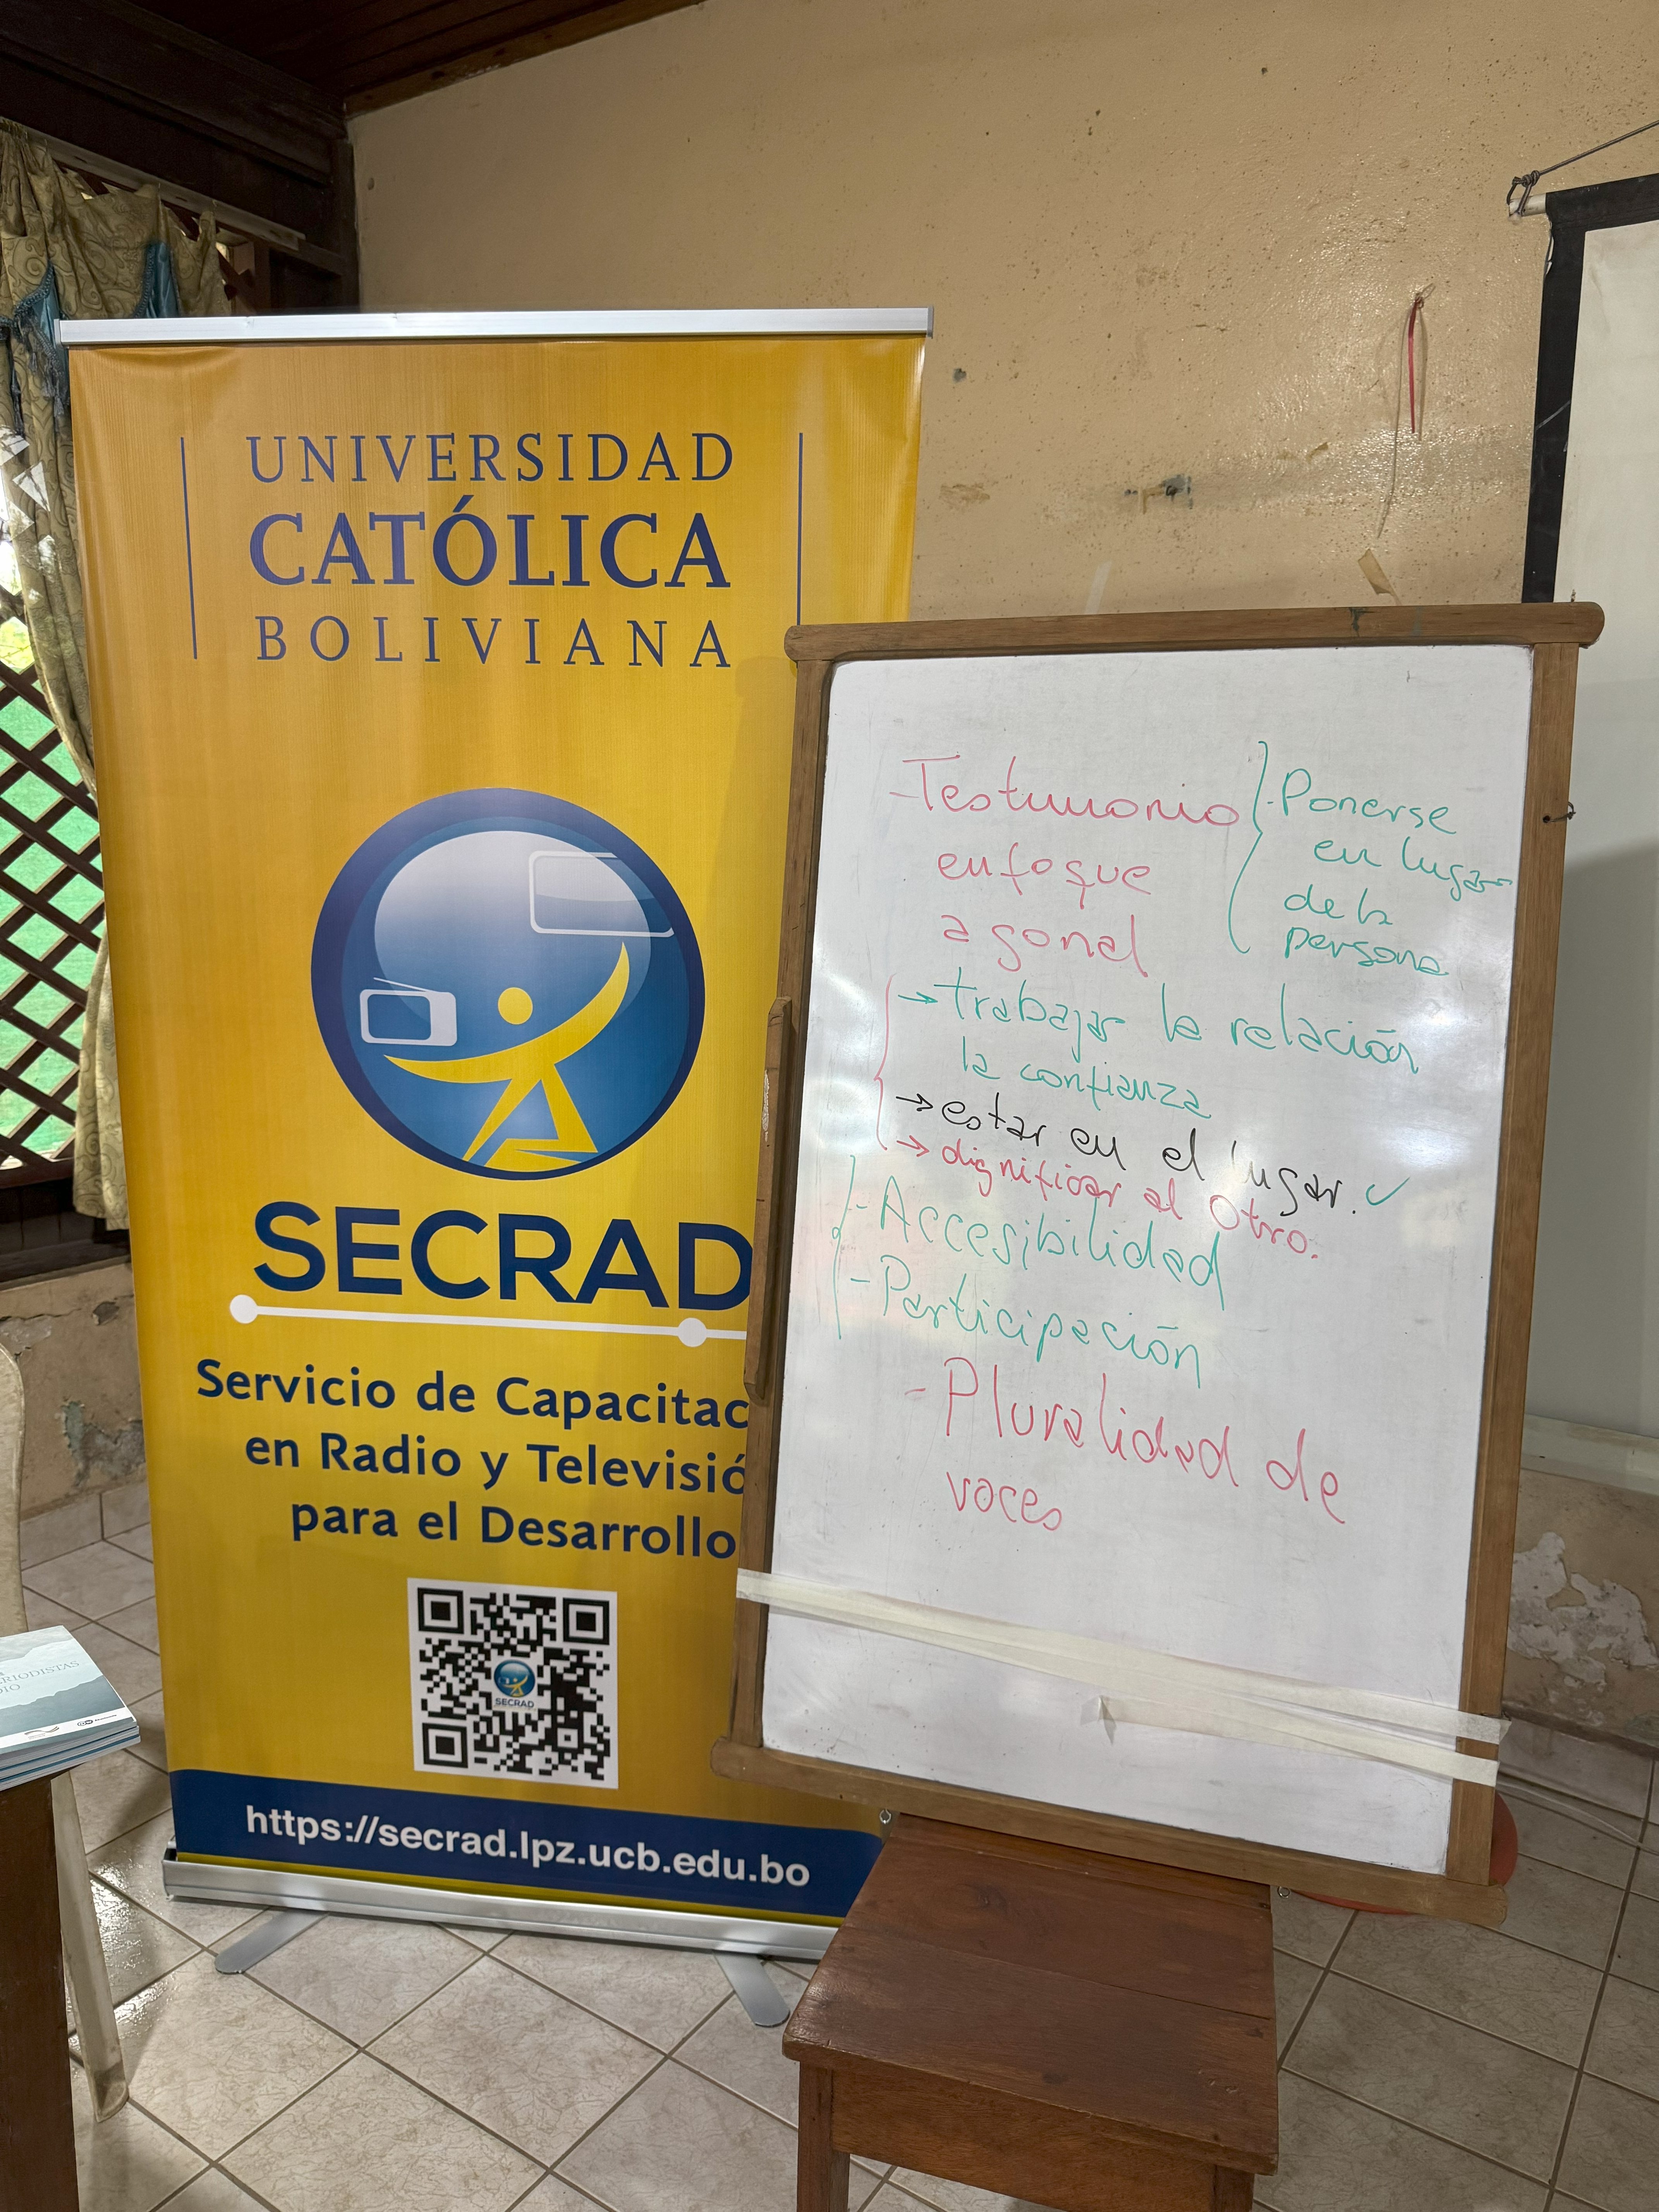 UNIVERSIDAD
CATÓLICA
BOLIVIANA
SECRAD
Servicio de Capacitac
en Radio y Televisió
para el Desarrollo
SECRAD
https://secrad.lpz.ucb.edu.bo
-Testimonio
enfoque
agonal
-Ponerse
en lugar
de la
persona
→ trabajar la relación
la confianza
→ estar en el lugar. ✓
→ dignificar al Otro.
- Accesibilidad
- Participación
- Pluralidad de
voces